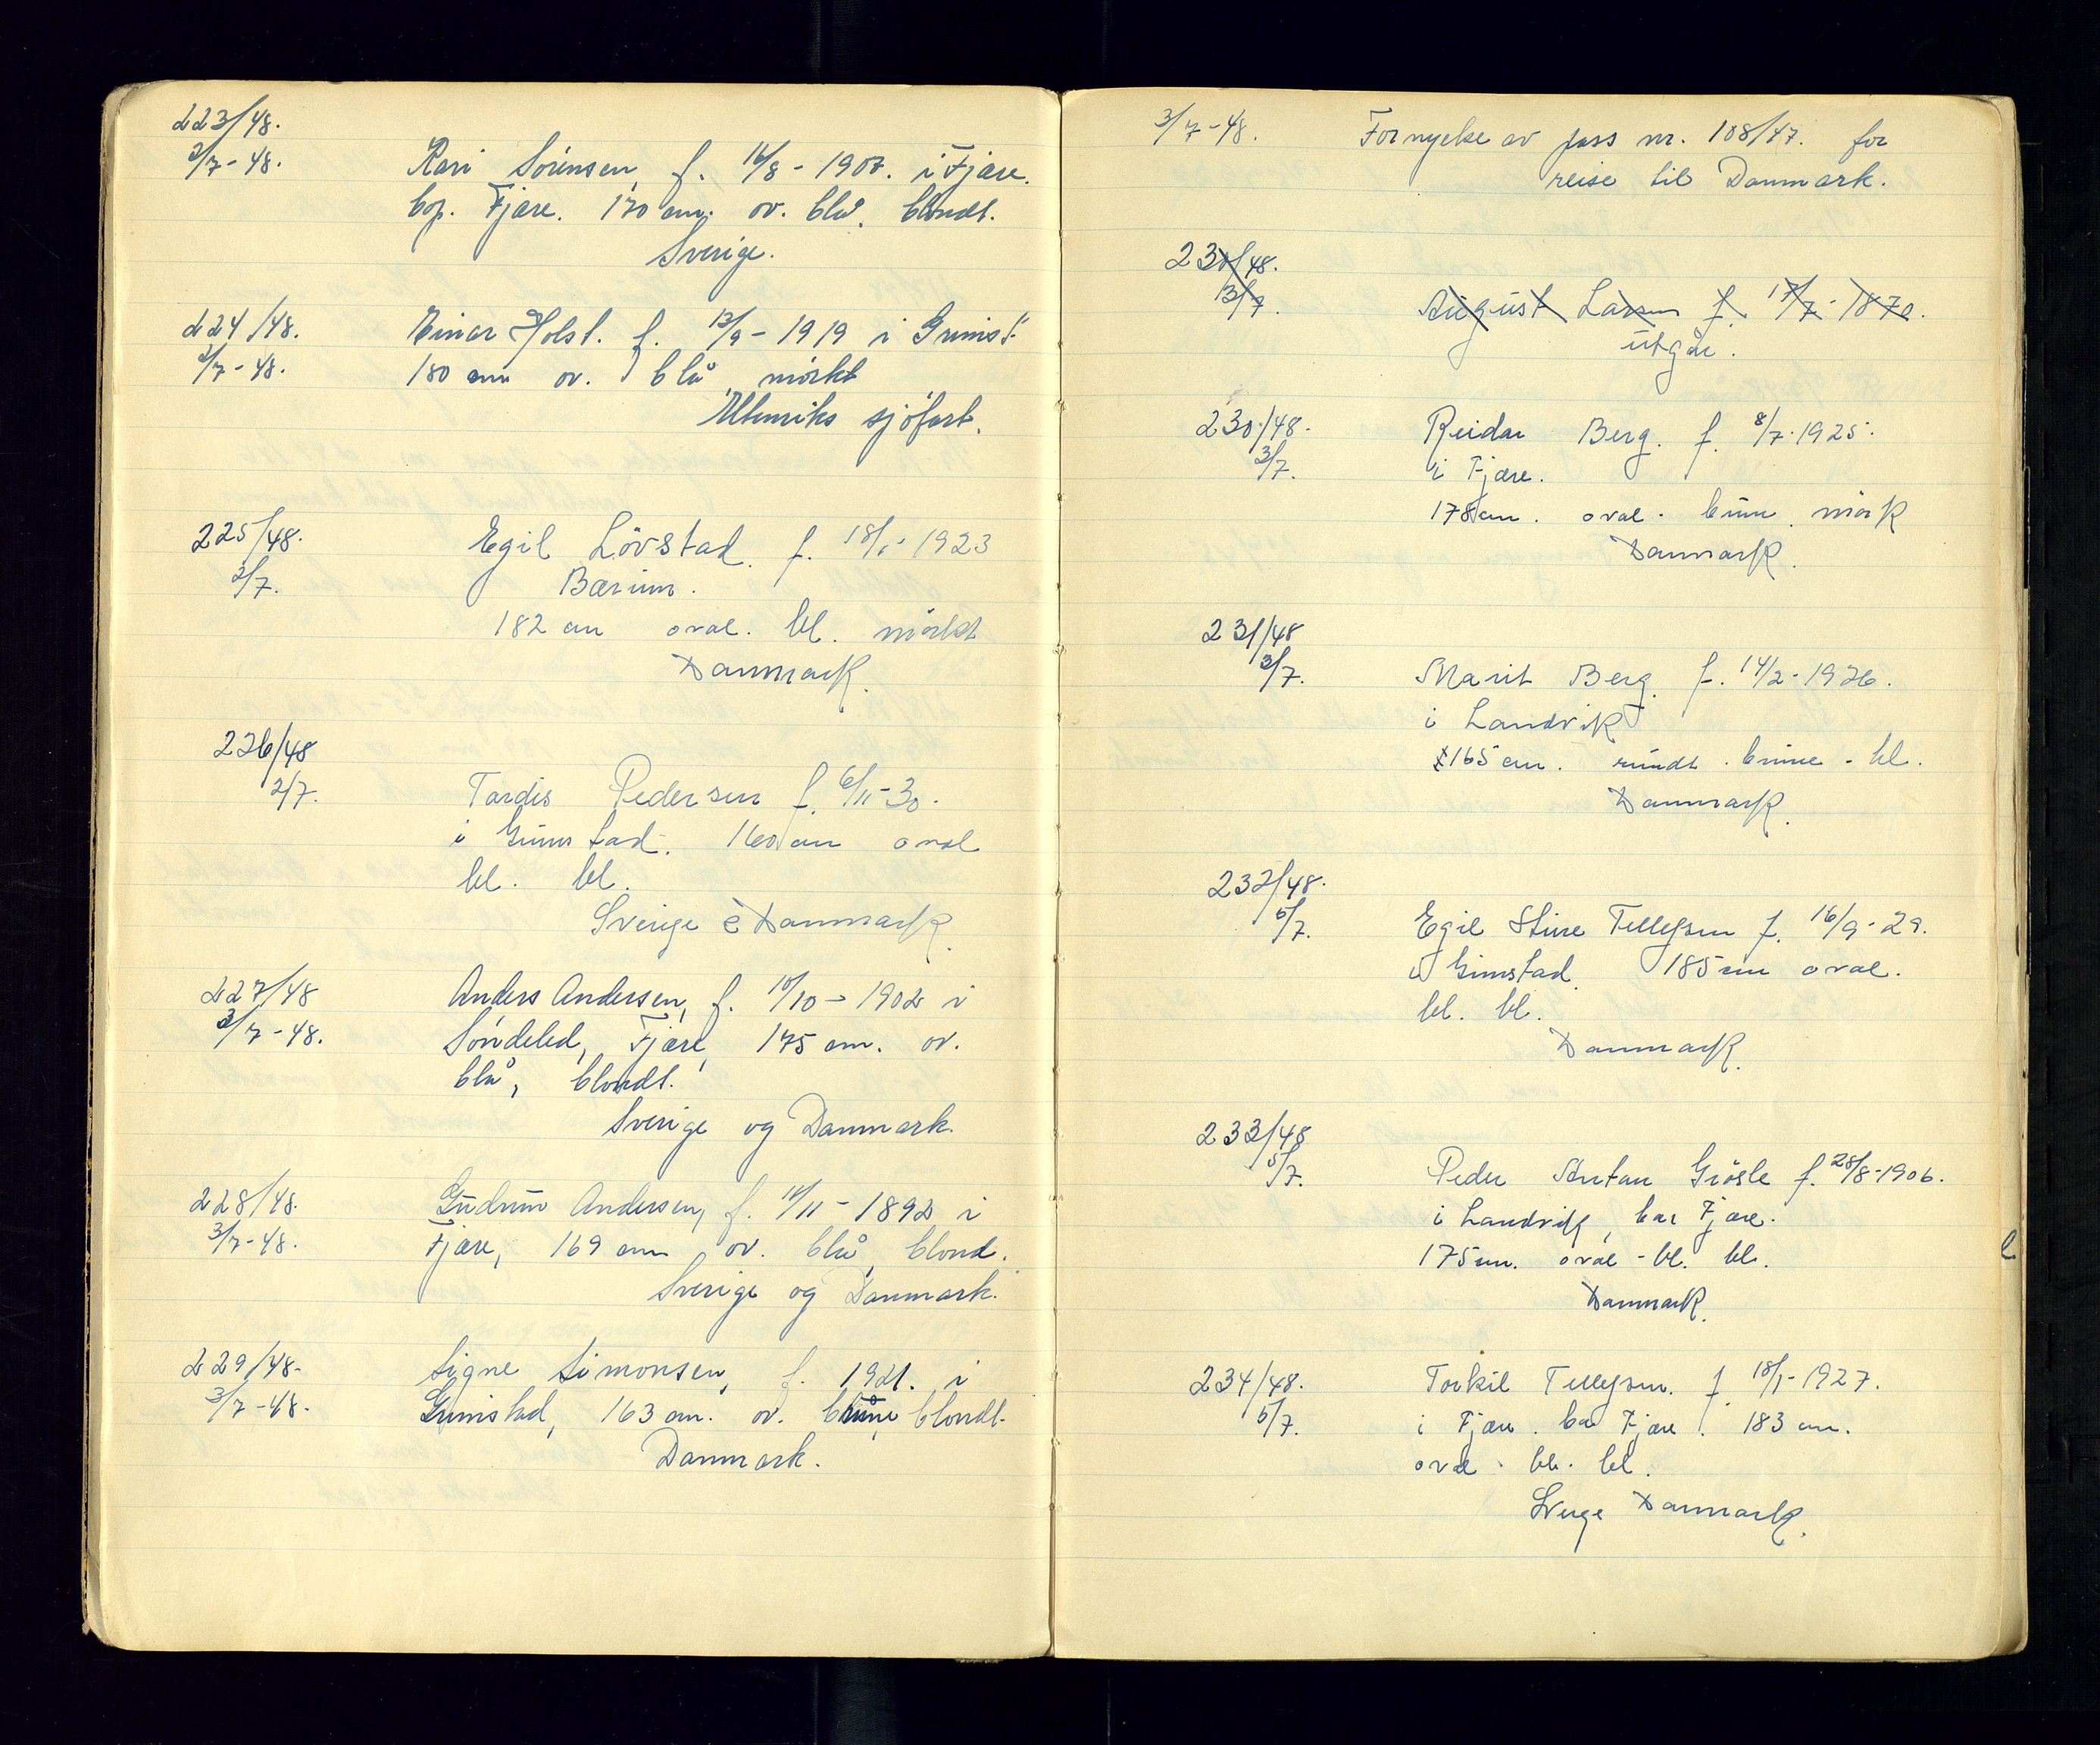 223/48.
2/7-48. Kari Sörensen, f. 16/8-1907. i Fjære.
bop. Fjære. 170 cm. ov. blå, blondt.
Sverige.
224/48. Einar Holst. f. 13/9-1919 i Grimst.
2/7-48. 180 cm ov. blå, mörkt
Utenriks sjöfart.
225/48. Egil Lövstad. f. 18/1-1923
2/7. Bærum.
182 cm oval. bl. mörkt
Danmark.
226/48
2/7. Tordis Pedersen f. 6/11-30.
i Grimstad. 160 cm oval
bl. bl.
Sverige & Danmark.
227/48 Anders Andersen, f. 10/10-1902 i
3/7-48. Söndeled, Fjære, 175 cm. ov.
blå, blondt.
Sverige og Danmark.
228/48. Gudrun Andersen, f. /11-1892 i
3/7-48. Fjære, 169 cm ov. blå, blond.
Sverige og Danmark.
229/48. Signe Simonsen, f. 1921. i
3/7-48. Grimstad, 163 cm. ov. blondt.
Danmark.
3/7-48. Fornyelse av pass nr. 108/47. for
reise til Danmark.
230/48.
3/7. August Larsen f. 17/7-1870.
utgår.
230/48. Reidar Berg. f. 8/7-1925.
3/7. i Fjære.
178 cm. oval. brune. mörk
Danmark.
231/48
3/7. Marit Berg. f. 14/2-1926.
i Landvik
165 cm. rundt. brune - bl.
Danmark.
232/48.
5/7. Egil Stine Tellefsen f. 16/9-29.
i Grimstad. 185 cm oval.
bl. bl.
Danmark.
233/48
5/7. Peder Antan f. 28/8-1906.
i Landvik, bor Fjære.
175 cm. oval - bl. bl.
Danmark.
234/48. Torkil Tellefsen. f. 18/1-1927.
5/7. i Fjære. bor Fjære. 183 cm.
oval. bl. bl.
Sverige Danmark.